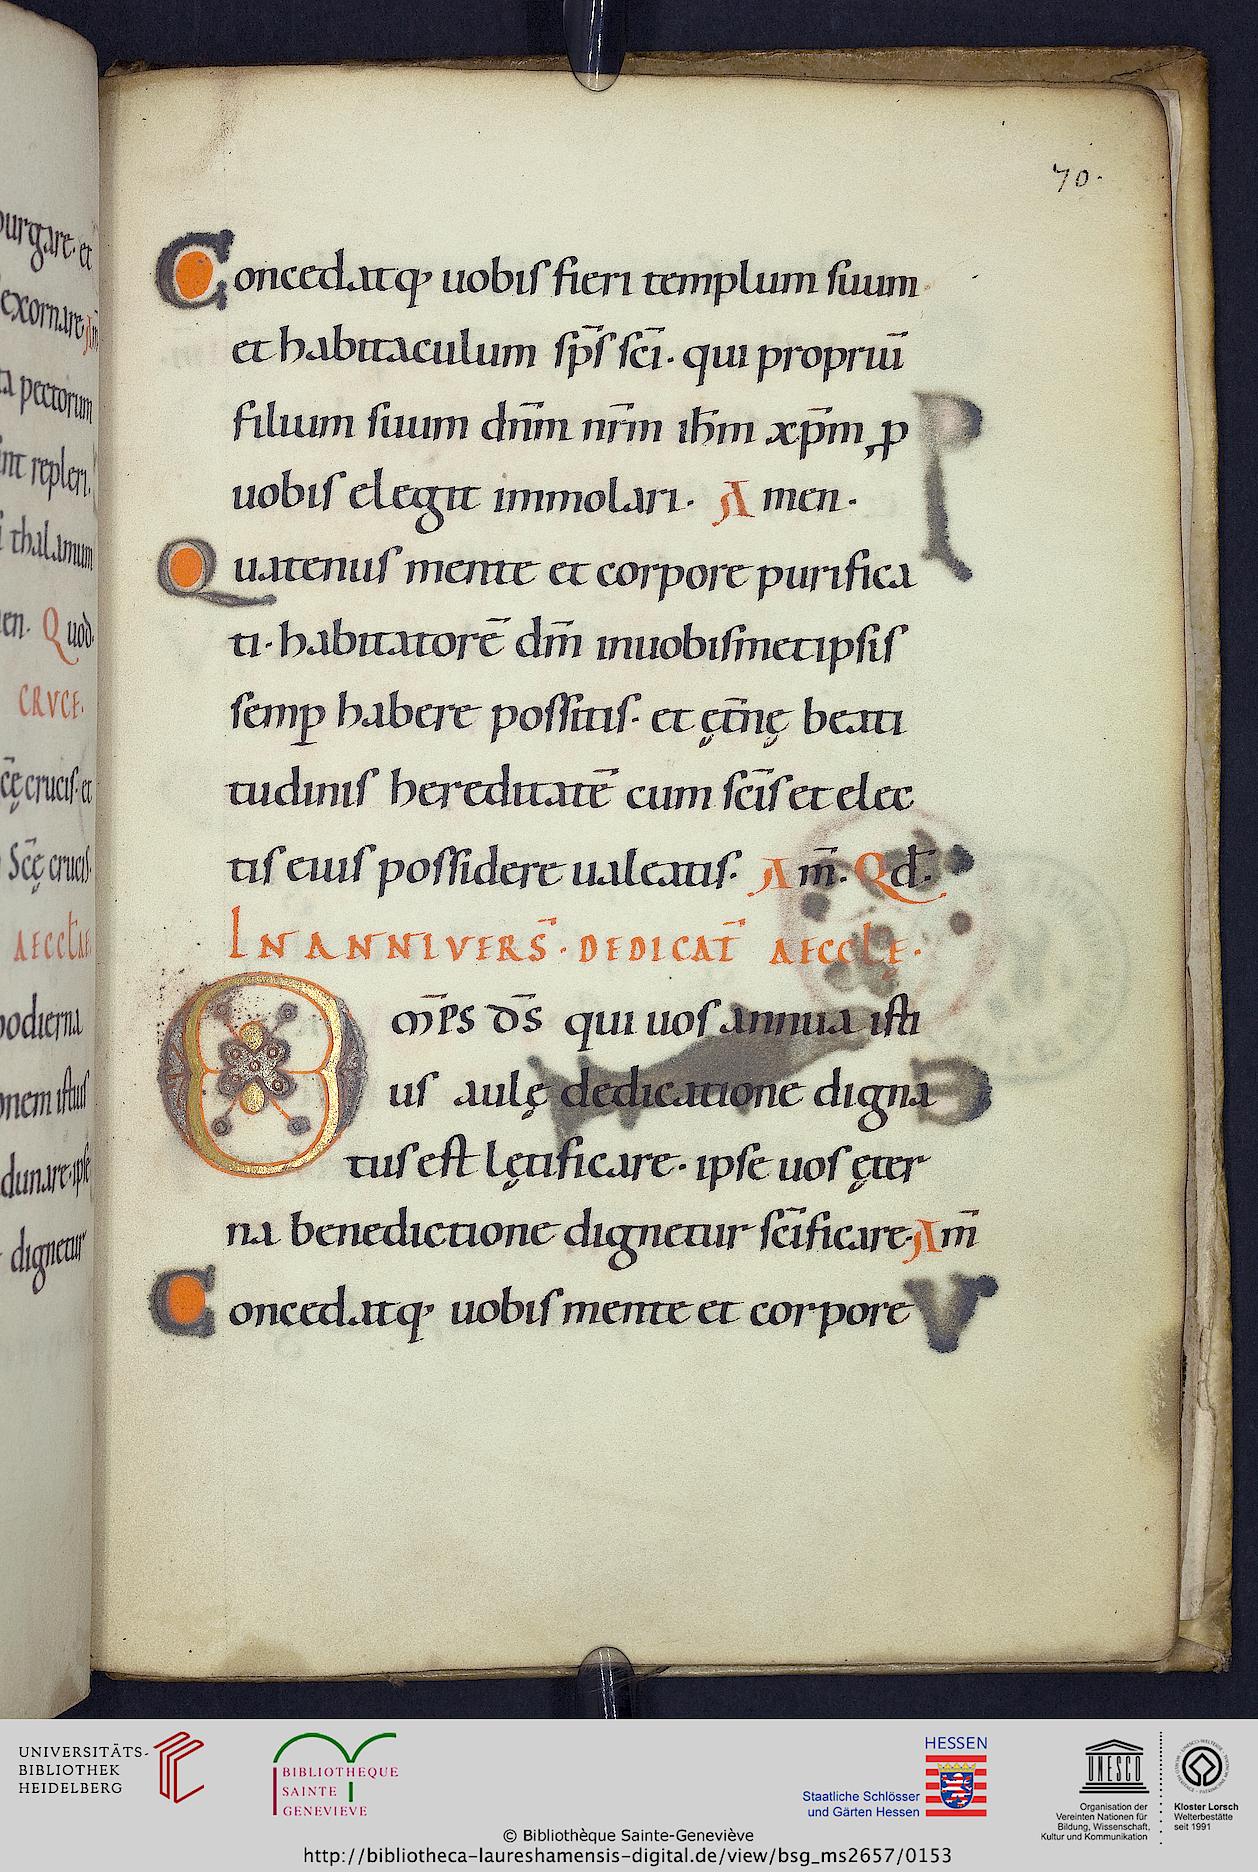 70.
purgare. et
exornare. Am̄
ta pectorum
int repleri.
i thalamum
en. Quod
CRVCE.
sc̄ę crucis. et
Sc̄ę crucis.
AECCLAE.
hodierna
onem istius
dunare. ipse
dignetur
Concedatq; uobis fieri templum suum
et habitaculum sp̄s sc̄i. qui propriū
filium suum dn̄m nr̄m ih̄m xp̄m, p
uobis elegit immolari. Amen.
Quatenus mente et corpore purifica
ti. habitatorē dm̄ inuobismetipsis
semꝑ habere possitis. et ęt̄nę beati
tudinis hereditatē cum sc̄is et elec
tis eius possidere ualeatis. Am̄. Qd.
IN ANNIVERS̄. DEDICAT̄ AECCLĘ.
Om̄PS D̄S qui uos annua isti
us aulę dedicatione digna
tus est lętificare. ipse uos ęter
na benedictione dignetur sc̄ificare. Am̄
Concedatq; uobis mente et corpore
UNIVERSITÄTS-
BIBLIOTHEK
HEIDELBERG
BIBLIOTHEQUE
SAINTE
GENEVIEVE
HESSEN
Staatliche Schlösser
und Gärten Hessen
UNESCO
Organisation der
Vereinten Nationen für
Bildung, Wissenschaft,
Kultur und Kommunikation
Kloster Lorsch
Welterbestätte
seit 1991
© Bibliothèque Sainte-Geneviève
http://bibliotheca-laureshamensis-digital.de/view/bsg_ms2657/0153